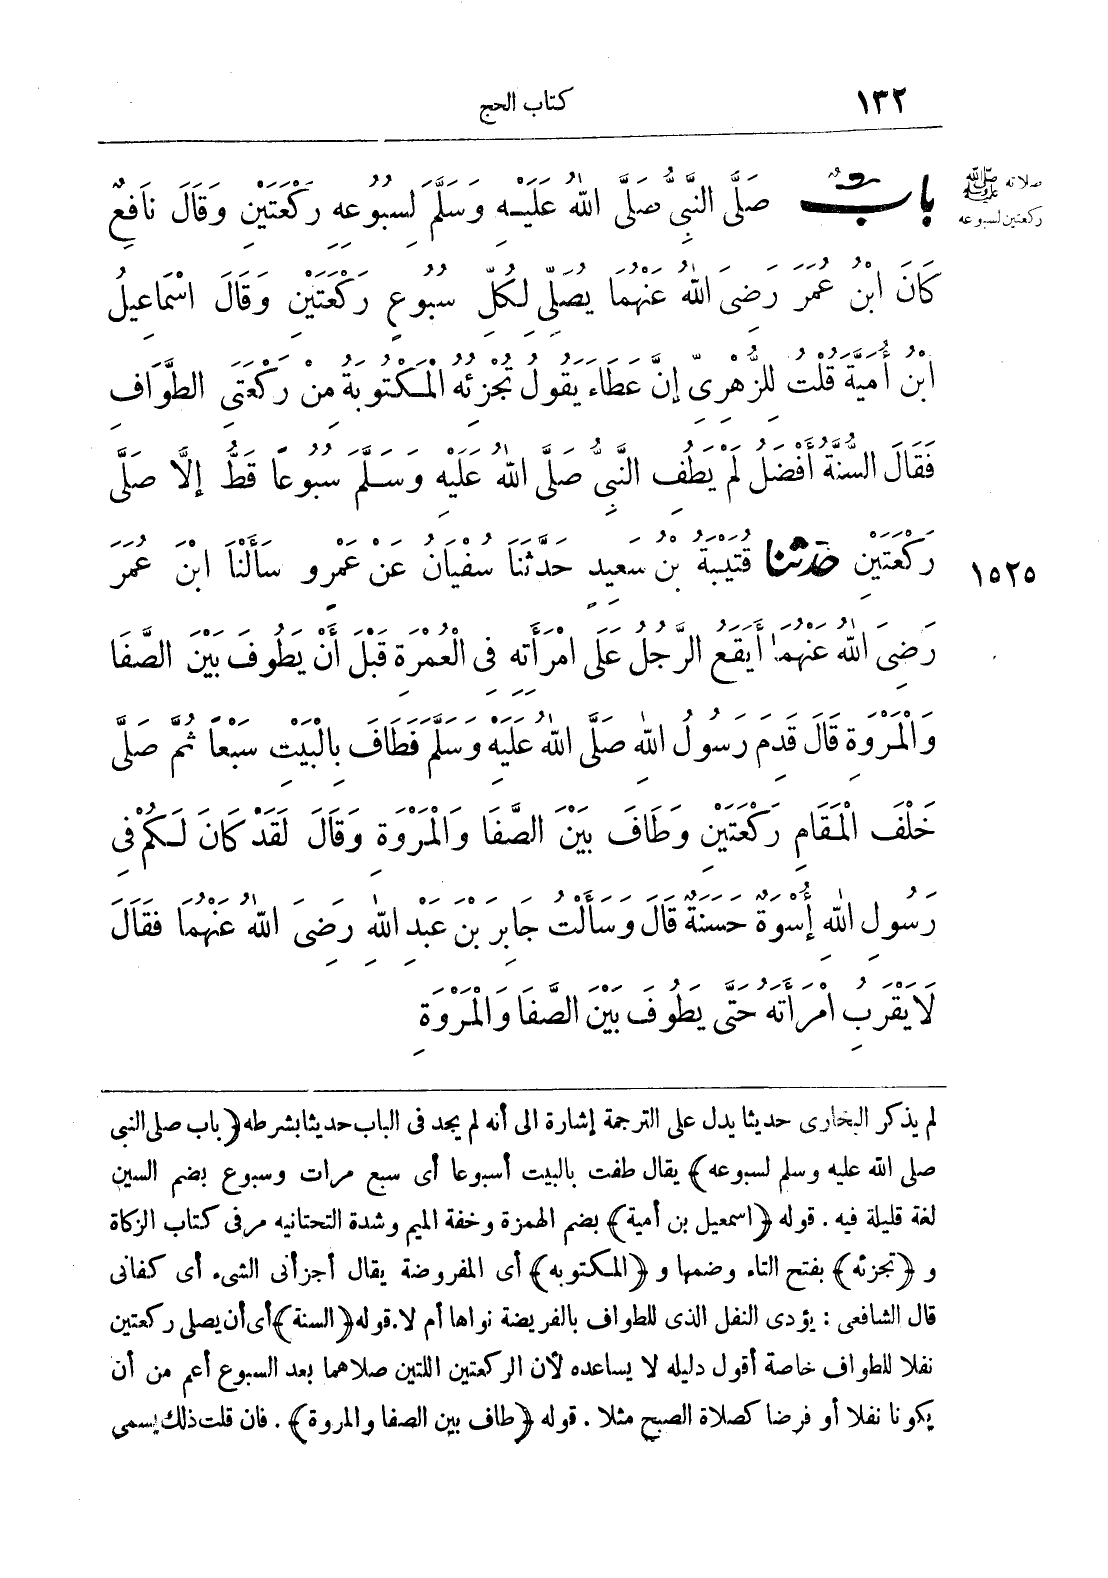 ١٣٢
كتاب الحج
صلاته ﷺ
ركعتين لسبوعه
بابٌ صَلَّى النَّبِيُّ صَلَّى اللهُ عَلَيْهِ وَسَلَّمَ لِسُبُوعِهِ رَكْعَتَيْنِ وَقَالَ نَافِعٌ
كَانَ ابْنُ عُمَرَ رَضِيَ اللهُ عَنْهُمَا يُصَلِّي لِكُلِّ سُبُوعٍ رَكْعَتَيْنِ وَقَالَ اسْمَاعِيلُ
ابْنُ أُمَيَّةَ قُلْتُ لِلزُّهْرِيِّ إِنَّ عَطَاءً يَقُولُ تُجْزِئُهُ الْمَكْتُوبَةُ مِنْ رَكْعَتَيِ الطَّوَافِ
فَقَالَ السُّنَّةُ أَفْضَلُ لَمْ يَطُفِ النَّبِيُّ صَلَّى اللهُ عَلَيْهِ وَسَلَّمَ سُبُوعًا قَطُّ إِلَّا صَلَّى
رَكْعَتَيْنِ حدثنا قُتَيْبَةُ بْنُ سَعِيدٍ حَدَّثَنَا سُفْيَانُ عَنْ عَمْرٍو سَأَلْنَا ابْنَ عُمَرَ
١٥٢٥
رَضِيَ اللهُ عَنْهُمَا أَيَقَعُ الرَّجُلُ عَلَى امْرَأَتِهِ فِي الْعُمْرَةِ قَبْلَ أَنْ يَطُوفَ بَيْنَ الصَّفَا
وَالْمَرْوَةِ قَالَ قَدِمَ رَسُولُ اللهِ صَلَّى اللهُ عَلَيْهِ وَسَلَّمَ فَطَافَ بِالْبَيْتِ سَبْعًا ثُمَّ صَلَّى
خَلْفَ الْمَقَامِ رَكْعَتَيْنِ وَطَافَ بَيْنَ الصَّفَا وَالْمَرْوَةِ وَقَالَ لَقَدْ كَانَ لَكُمْ فِي
رَسُولِ اللهِ إُسْوَةٌ حَسَنَةٌ قَالَ وَسَأَلْتُ جَابِرَ بْنَ عَبْدِ اللهِ رَضِيَ اللهُ عَنْهُمَا فَقَالَ
لَا يَقْرَبُ امْرَأَتَهُ حَتَّى يَطُوفَ بَيْنَ الصَّفَا وَالْمَرْوَةِ
لم يذكر البخارى حديثا يدل على الترجمة إشارة الى أنه لم يجد فى الباب حديثا بشرطه ﴿باب صلى النبى
صلى الله عليه وسلم لسبوعه﴾ يقال طفت بالبيت أسبوعا أى سبع مرات وسبوع بضم السين
لغة قليلة فيه . قوله ﴿اسمعيل بن أمية﴾ بضم الهمزة وخفة الميم وشدة التحتانيه مر فى كتاب الزكاة
و ﴿تجزئه﴾ بفتح التاء وضمها و ﴿المكتوبه﴾ أى المفروضة يقال أجزأنى الشىء أى كفانى
قال الشافعى : يؤدى النفل الذى للطواف بالفريضة نواها أم لا. قوله ﴿السنة﴾ أى أن يصلى ركعتين
نفلا للطواف خاصة أقول دليله لا يساعده لأن الركعتين اللتين صلاهما بعد السبوع أعم من أن
يكونا نفلا أو فرضا كصلاة الصبح مثلا . قوله ﴿طاف بين الصفا والمروة﴾ . فان قلت ذلك يسمى